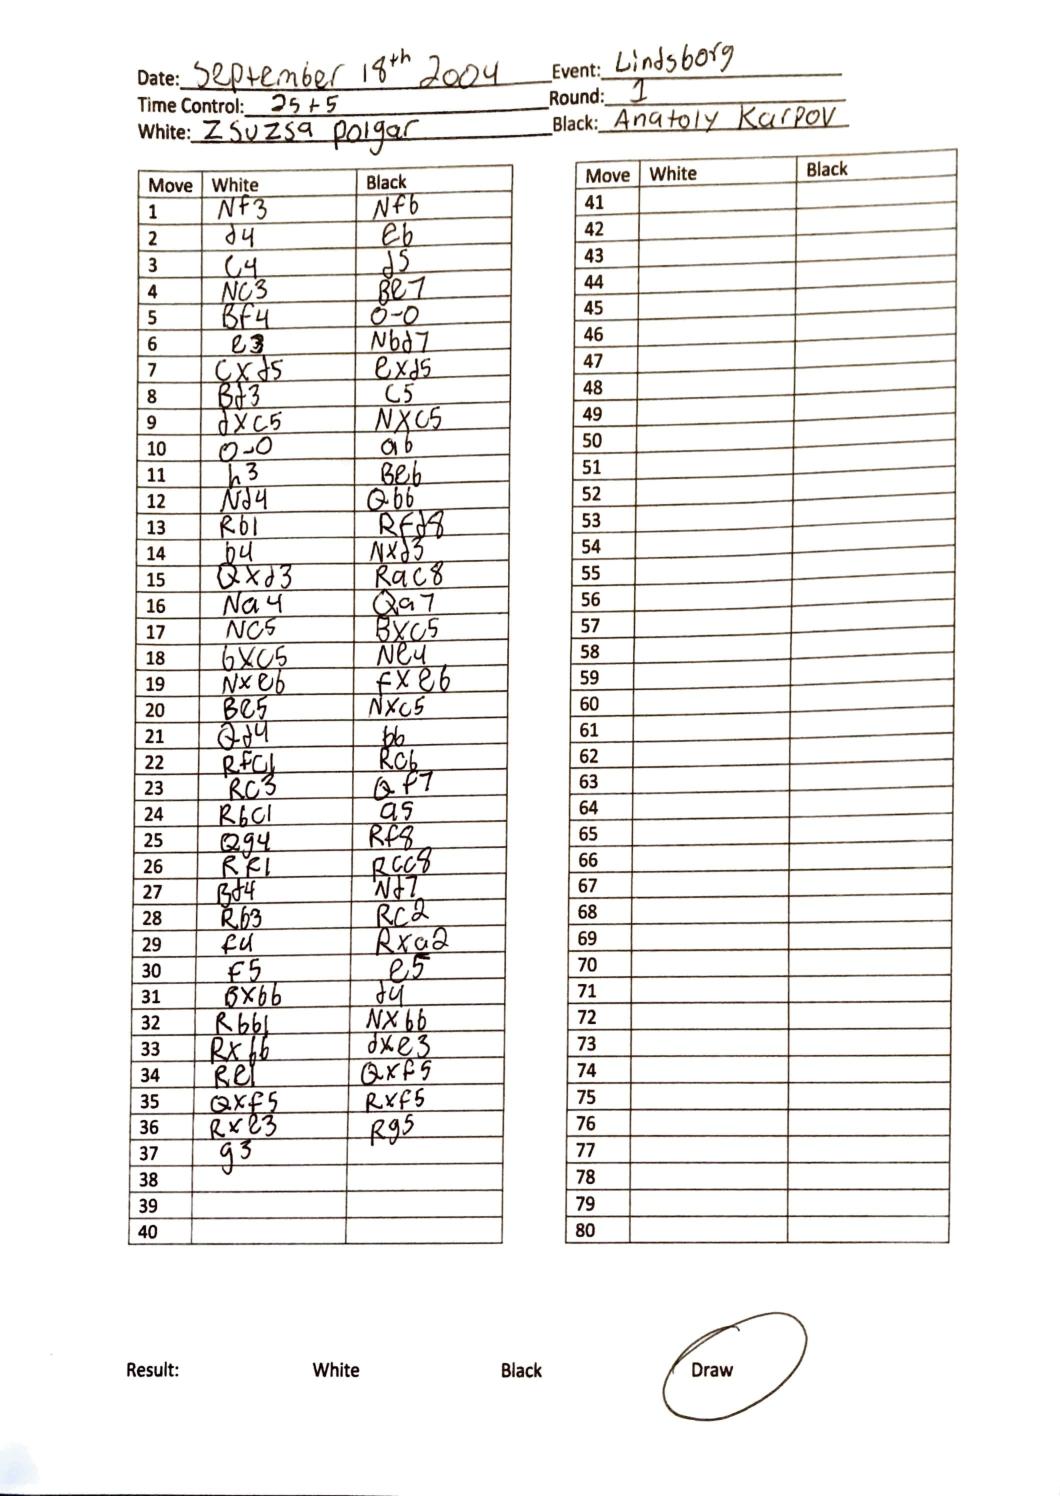 Date: September 18th 2004 Event: Lindsborg
Time Control: 25+5 Round: 1
White: Zsuzsa polgar Black: Anatoly Karpov
Move White Black
1 Nf3 Nf6
2 d4 e6
3 C4 d5
4 NC3 Be7
5 Bf4 0-0
6 e3 Nbd7
7 Cxd5 exd5
8 Bd3 C5
9 dxc5 NXC5
10 0-0 a6
11 h3 Be6
12 Nd4 Qb6
13 Rb1 Rfd8
14 b4 Nxd3
15 Qxd3 Rac8
16 Na4 Qa7
17 NC5 BXC5
18 bXC5 Ne4
19 Nxe6 fxe6
20 Be5 NXC5
21 Qd4 b6
22 RfC1 RC6
23 RC3 Qf7
24 RbC1 a5
25 Qg4 Rf8
26 Rf1 RCC8
27 Bd4 Nd7
28 Rb3 RC2
29 f4 Rxa2
30 f5 e5
31 BXb6 d4
32 Rbb1 NXb6
33 RXb6 dxe3
34 Re1 Qxf5
35 Qxf5 RXf5
36 Rxe3 Rg5
37 g3
38
39
40
Move White Black
41
42
43
44
45
46
47
48
49
50
51
52
53
54
55
56
57
58
59
60
61
62
63
64
65
66
67
68
69
70
71
72
73
74
75
76
77
78
79
80
Result: White Black Draw